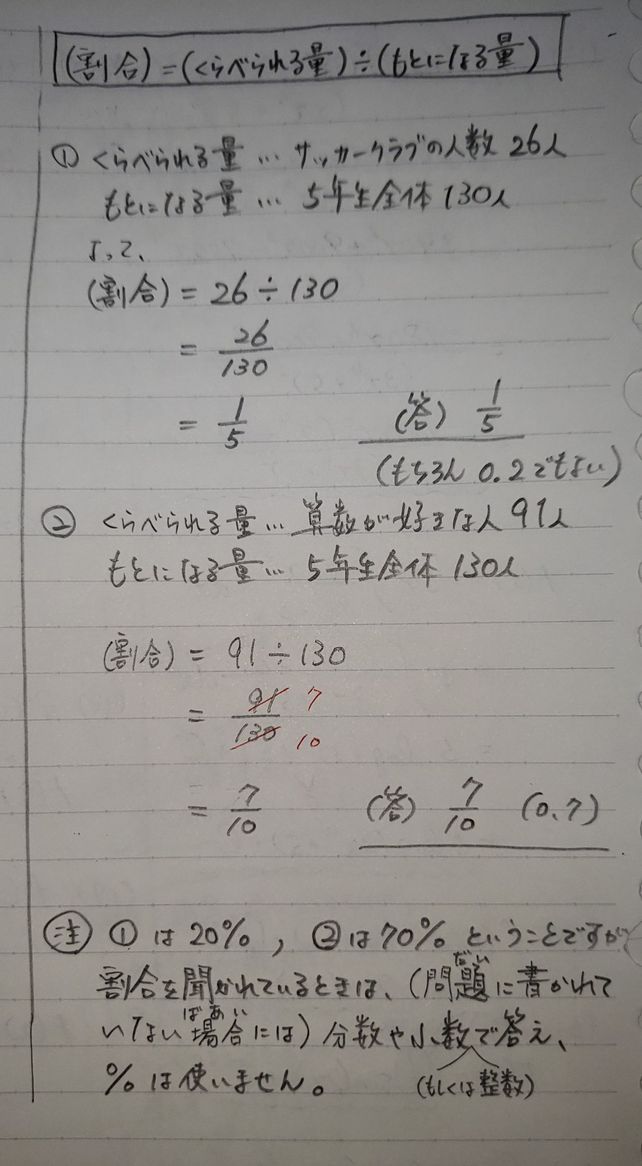 (割合)=(くらべられる量)÷(もとになる量)
① くらべられる量… サッカークラブの人数 26人
もとになる量… 5年生全体 130人
よって、
(割合) = 26÷130
= 26/130
= 1/5 (答) 1/5
(もちろん 0.2でもよい)
② くらべられる量… 算数が好きな人 91人
もとになる量… 5年生全体 130人
(割合) = 91÷130
= 91/130 7 10
= 7/10 (答) 7/10 (0.7)
注 ①は20%, ②は70% ということですが
だい
割合を聞かれているときは、(問題に書かれて
ばあい
いない場合には) 分数や小数で答え、
%は使いません。 (もしくは整数)